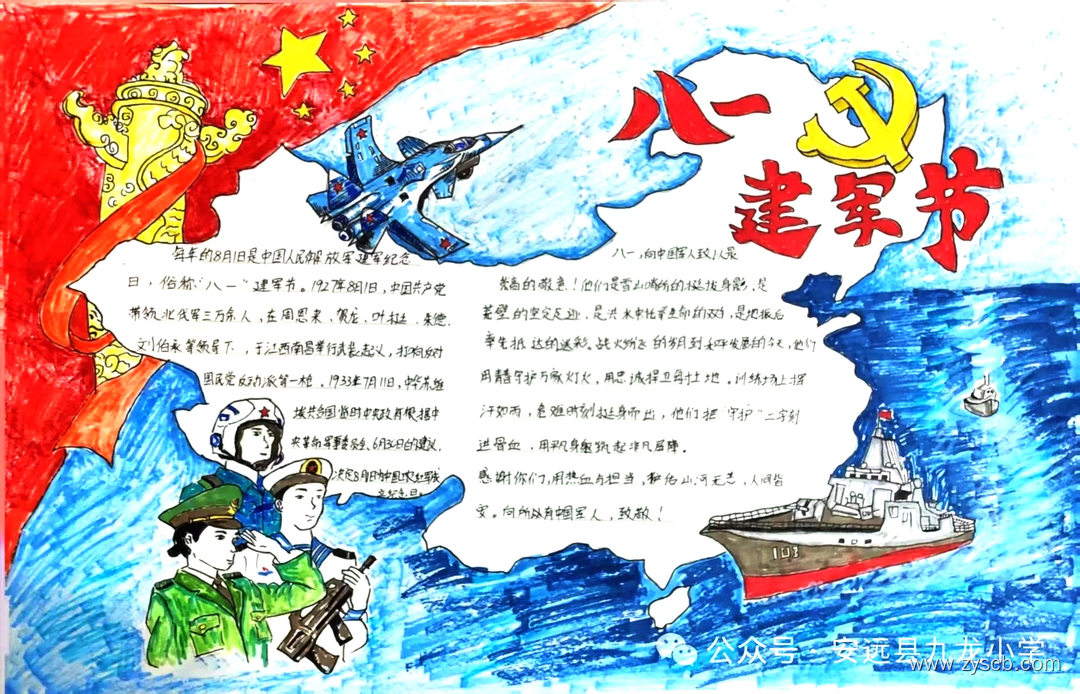 八一
建军节
每年的8月1日是中国人民解放军建军纪念
日，俗称“八一”建军节。1927年8月1日，中国共产党
带领北伐军三万余人，在周恩来、贺龙、叶挺、朱德、
刘伯承等领导下，于江西南昌举行武装起义，打响反对
国民党反动派第一枪。1933年7月11日，中华苏维
埃共和国临时中央政府根据中
央革命军事委员会6月30日的建议，
决定8月1日为中国工农红军成
立纪念日。
八一，向中国军人致以最
崇高的敬意！他们是雪山哨所的挺拔身影，是
是洪水中托举生命的双手，是地震后
率先抵达的迷彩。战火纷飞的岁月到和平发展的今天，他们
用青春守护万家灯火，用忠诚捍卫每寸土地。训练场上挥
汗如雨，危难时刻挺身而出，他们把“守护”二字刻
进骨血，用平凡身躯筑起非凡屏障。
感谢你们，用热血与担当，换佑山河无恙，人间皆
安。向所以有中国军人，致敬！
103
公众号·安远县九龙小学
www.zyscb.com